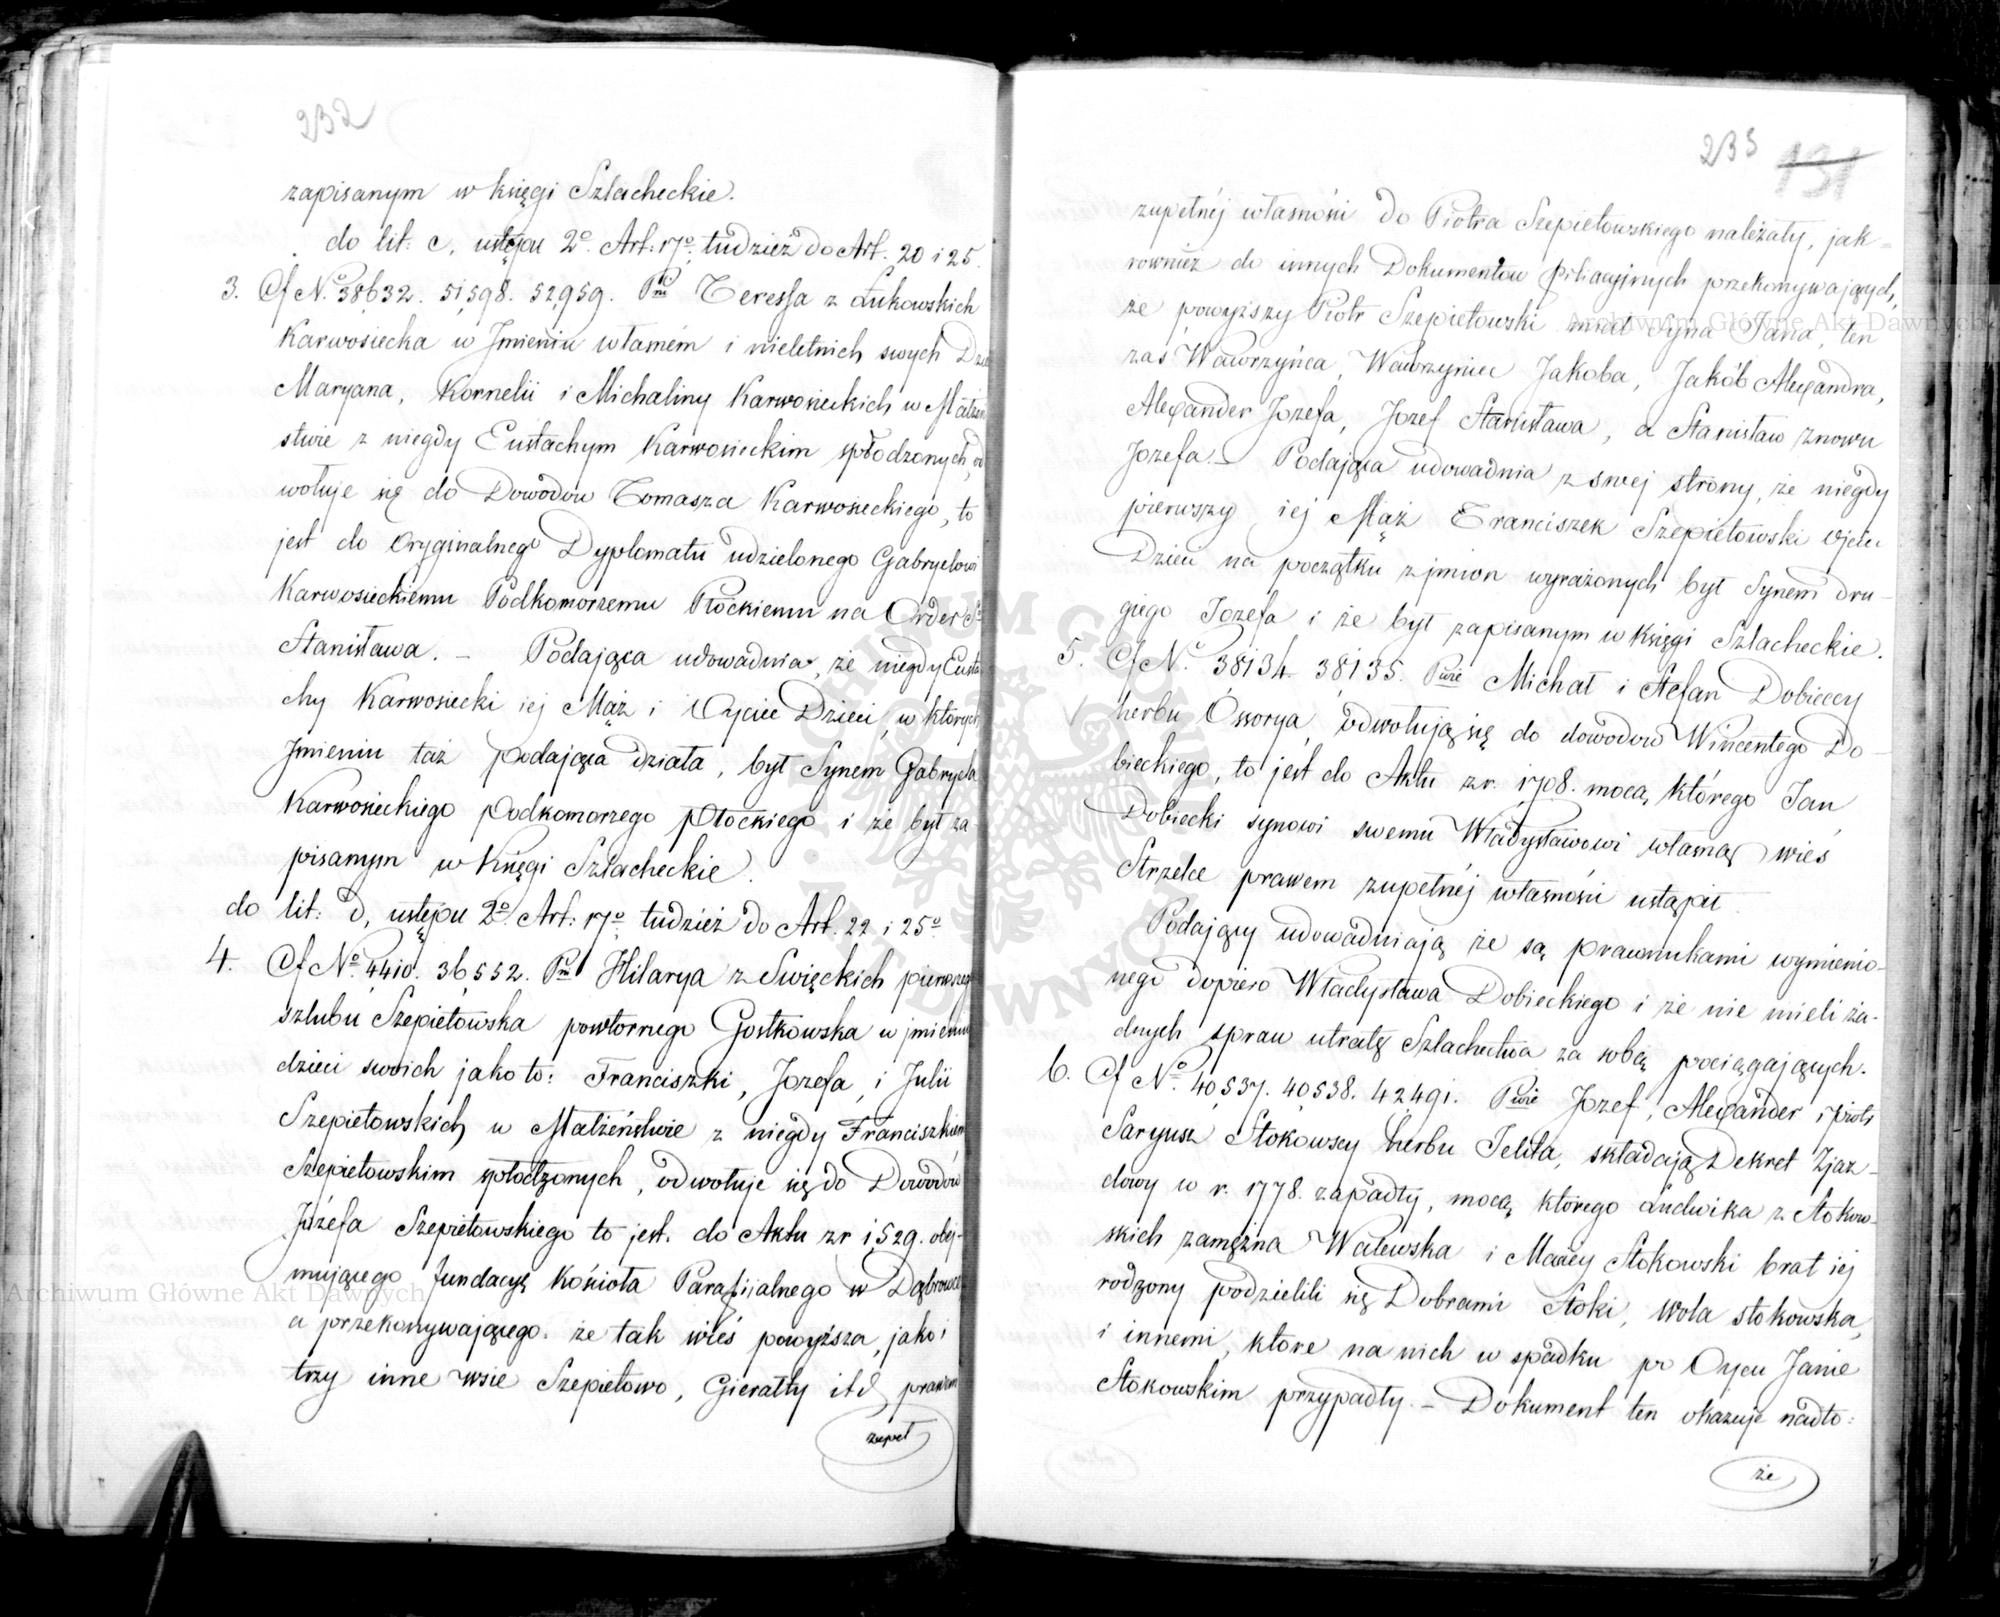 232
zapisanym w księgi Szlacheckie.
do lit: c, ustępu 2º. Art: 17º. tudzież do Art. 20 i 25.
3. Cf Nº. 38632. 51598. 52959. Pni Teressa z Łukowskich
Karwosiecka w Jmieniu własném i nieletnich swych Dzie
Maryana, Kornelii i Michaliny Karwosieckich w Małżeń
stwie z niegdy Eustachym Karwosieckim spłodzonych, od
wołuje się do Dowodów Tomasza Karwosieckiego, to
jest do Oryginalnego Dyplomatu udzielonego Gabryelowi
Karwosieckiemu Podkomorzemu Płockiemu na Order Sº
Stanisława. – Podająca udowadnia, że niegdy Eusta
chy Karwosiecki iej Mąż i Oyciec Dzieci, w których
Jmieniu taż podająca działa, był Synem Gabryela
Karwosieckiego podkomorzego płockiego i że był za
pisanym w Księgi Szlacheckie.
do lit: d, ustępu 2º. Art: 17º. tudzież do Art. 22 i 25º
4. Cf Nº. 4410. 36552. Pni Hilarya z Swięckich pierwszego
szlubu Szepietowska powtornego Gostkowska w jmieniu
dzieci swoich jako to: Franciszki, Jozefa, i Julii
Szepietowskich w Małżeństwie z niegdy Franciszkiem
Szepietowskim spłodzonych, odwołuje się do Dowodów
Józefa Szepietowskiego to jest. do Aktu z r 1529. obej-
mującego fundacyę Kościoła Parafijalnego w Dąbrowce
a przekonywającego. że tak wieś powyższa, jako i
trzy inne wsie Szepietowo, Gierałty itd prawem
zupeł
235 131
zupełnéj własności do Piotra Szepietowskiego należały, jak-
również do innych Dokumentów filiacyjnych przekonywających,
że powyższy Piotr Szepietowski miał Syna Jana, ten
zaś Wawrzyńca, Wawrzyniec Jakóba, Jakób Alexandra,
Alexander Jozefa, Jozef Stanisława, a Stanisław znowu
Jozefa. – Podająca udowadnia z swej strony, że niegdy
pierwszy iej Mąż Franciszek Szepietowski Ojciec
Dzieci na początku z jmion wyrażonych był Synem dru-
giego Jozefa i że był zapisanym w Księgi Szlacheckie.
5. Cf Nº. 38134. 38135. Pwie Michał i Stefan Dobieccy
herbu Ossorya, odwołują się do dowodów Wincentego Do-
bieckiego, to jest do Aktu z r. 1708. mocą którego Jan
Dobiecki synowi swemu Władysławowi własną wieś
Strzelce prawem zupełnéj własności ustąpił.
Podający udowadniają że są prawnukami wymienio-
nego dopiero Władysława Dobieckiego i że nie mieli ża-
dnych spraw utratę Szlachectwa za sobą pociągających.
6. Cf Nº. 40537. 40538. 42491. Pwie Jozef, Alexander i Piotr
Saryusz Stokowscy herbu Jelita, składają Dekret Zjaz-
dowy w r. 1778. zapadły, mocą którego Ludwika z Stokow-
skich zamężna Walewska i Maciej Stokowski brat iej
rodzony podzielili się Dobrami Stoki, Wola stokowska,
i innemi, które na nich w spadku po Oycu Janie
Stokowskim przypadły. – Dokument ten okazuje nadto:
że
Archiwum Główne Akt Dawnych
Archiwum Główne Akt Dawnych
ARCHIWUM GŁÓWNE AKT DAWNYCH